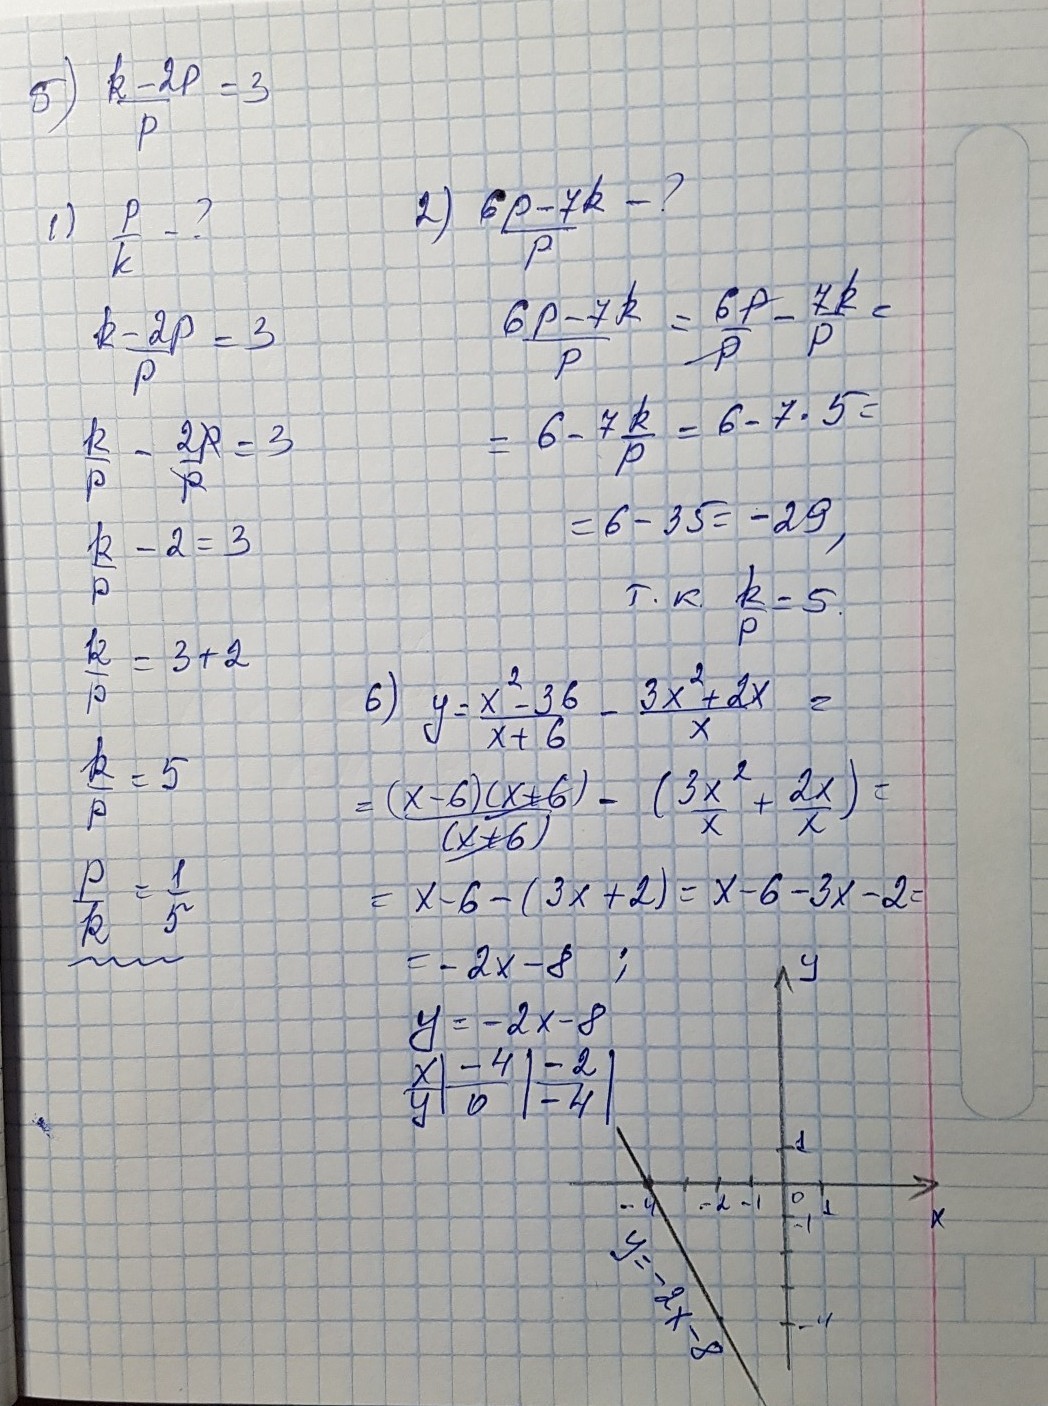 5) (k-2p)/p = 3
1) p/k - ?
(k-2p)/p = 3
k/p - 2p/p = 3
k/p - 2 = 3
k/p = 3+2
k/p = 5
p/k = 1/5
2) (6p-7k)/p - ?
(6p-7k)/p = 6p/p - 7k/p =
= 6 - 7 k/p = 6 - 7 · 5 =
= 6 - 35 = -29,
т.к. k/p = 5.
6) y = (x²-36)/(x+6) - (3x²+2x)/x =
= (x-6)(x+6)/(x+6) - (3x²/x + 2x/x) =
= x-6-(3x+2) = x-6-3x-2 =
= -2x-8 ;
y = -2x-8
x | -4 | -2 |
y | 0 | -4 |
y
1
-4 -2 -1 0 1
x
-1
-4
y = -2x-8